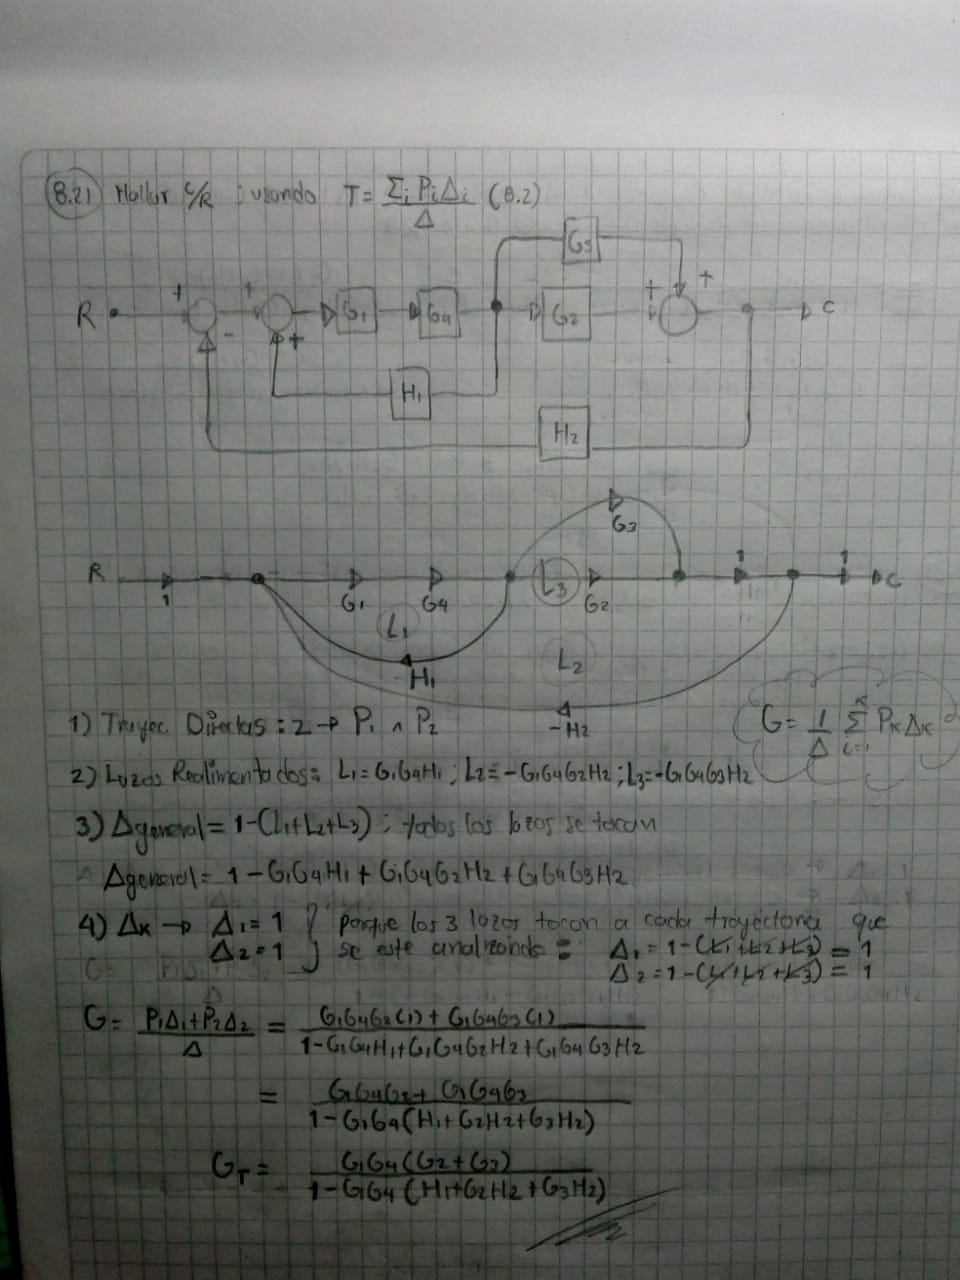 8.21 Hallar C/R ; usando T = Σi Pi Δi / Δ (8.2)
G3
R + + G1 G4 G2 + + C
- +
H1
H2
G3
R 1 G1 G4 L3 G2 1 1 C
L1
H1 L2
-H2
G = 1/Δ Σ PK ΔK
1) Trayec. Directas : 2 → P1 ∧ P2
2) Lazos Realimentados: L1 = G1G4H1 ; L2 = -G1G4G2H2 ; L3 = -G1G4G3H2
3) Δgeneral = 1-(L1+L2+L3) ; todos los lazos se tocan
Δgeneral = 1 - G1G4H1 + G1G4G2H2 + G1G4G3H2
4) ΔK → Δ1 = 1 } porque los 3 lazos tocan a cada trayectoria que
Δ2 = 1 se este analizando : Δ1 = 1-(L1+L2+L3) = 1
Δ2 = 1-(L1+L2+L3) = 1
G = P1Δ1+P2Δ2 / Δ = G1G4G2(1) + G1G4G3(1) / 1-G1G4H1+G1G4G2H2+G1G4G3H2
= G1G4G2 + G1G4G3 / 1-G1G4(H1+G2H2+G3H2)
GT = G1G4(G2+G3) / 1-G1G4(H1+G2H2+G3H2)